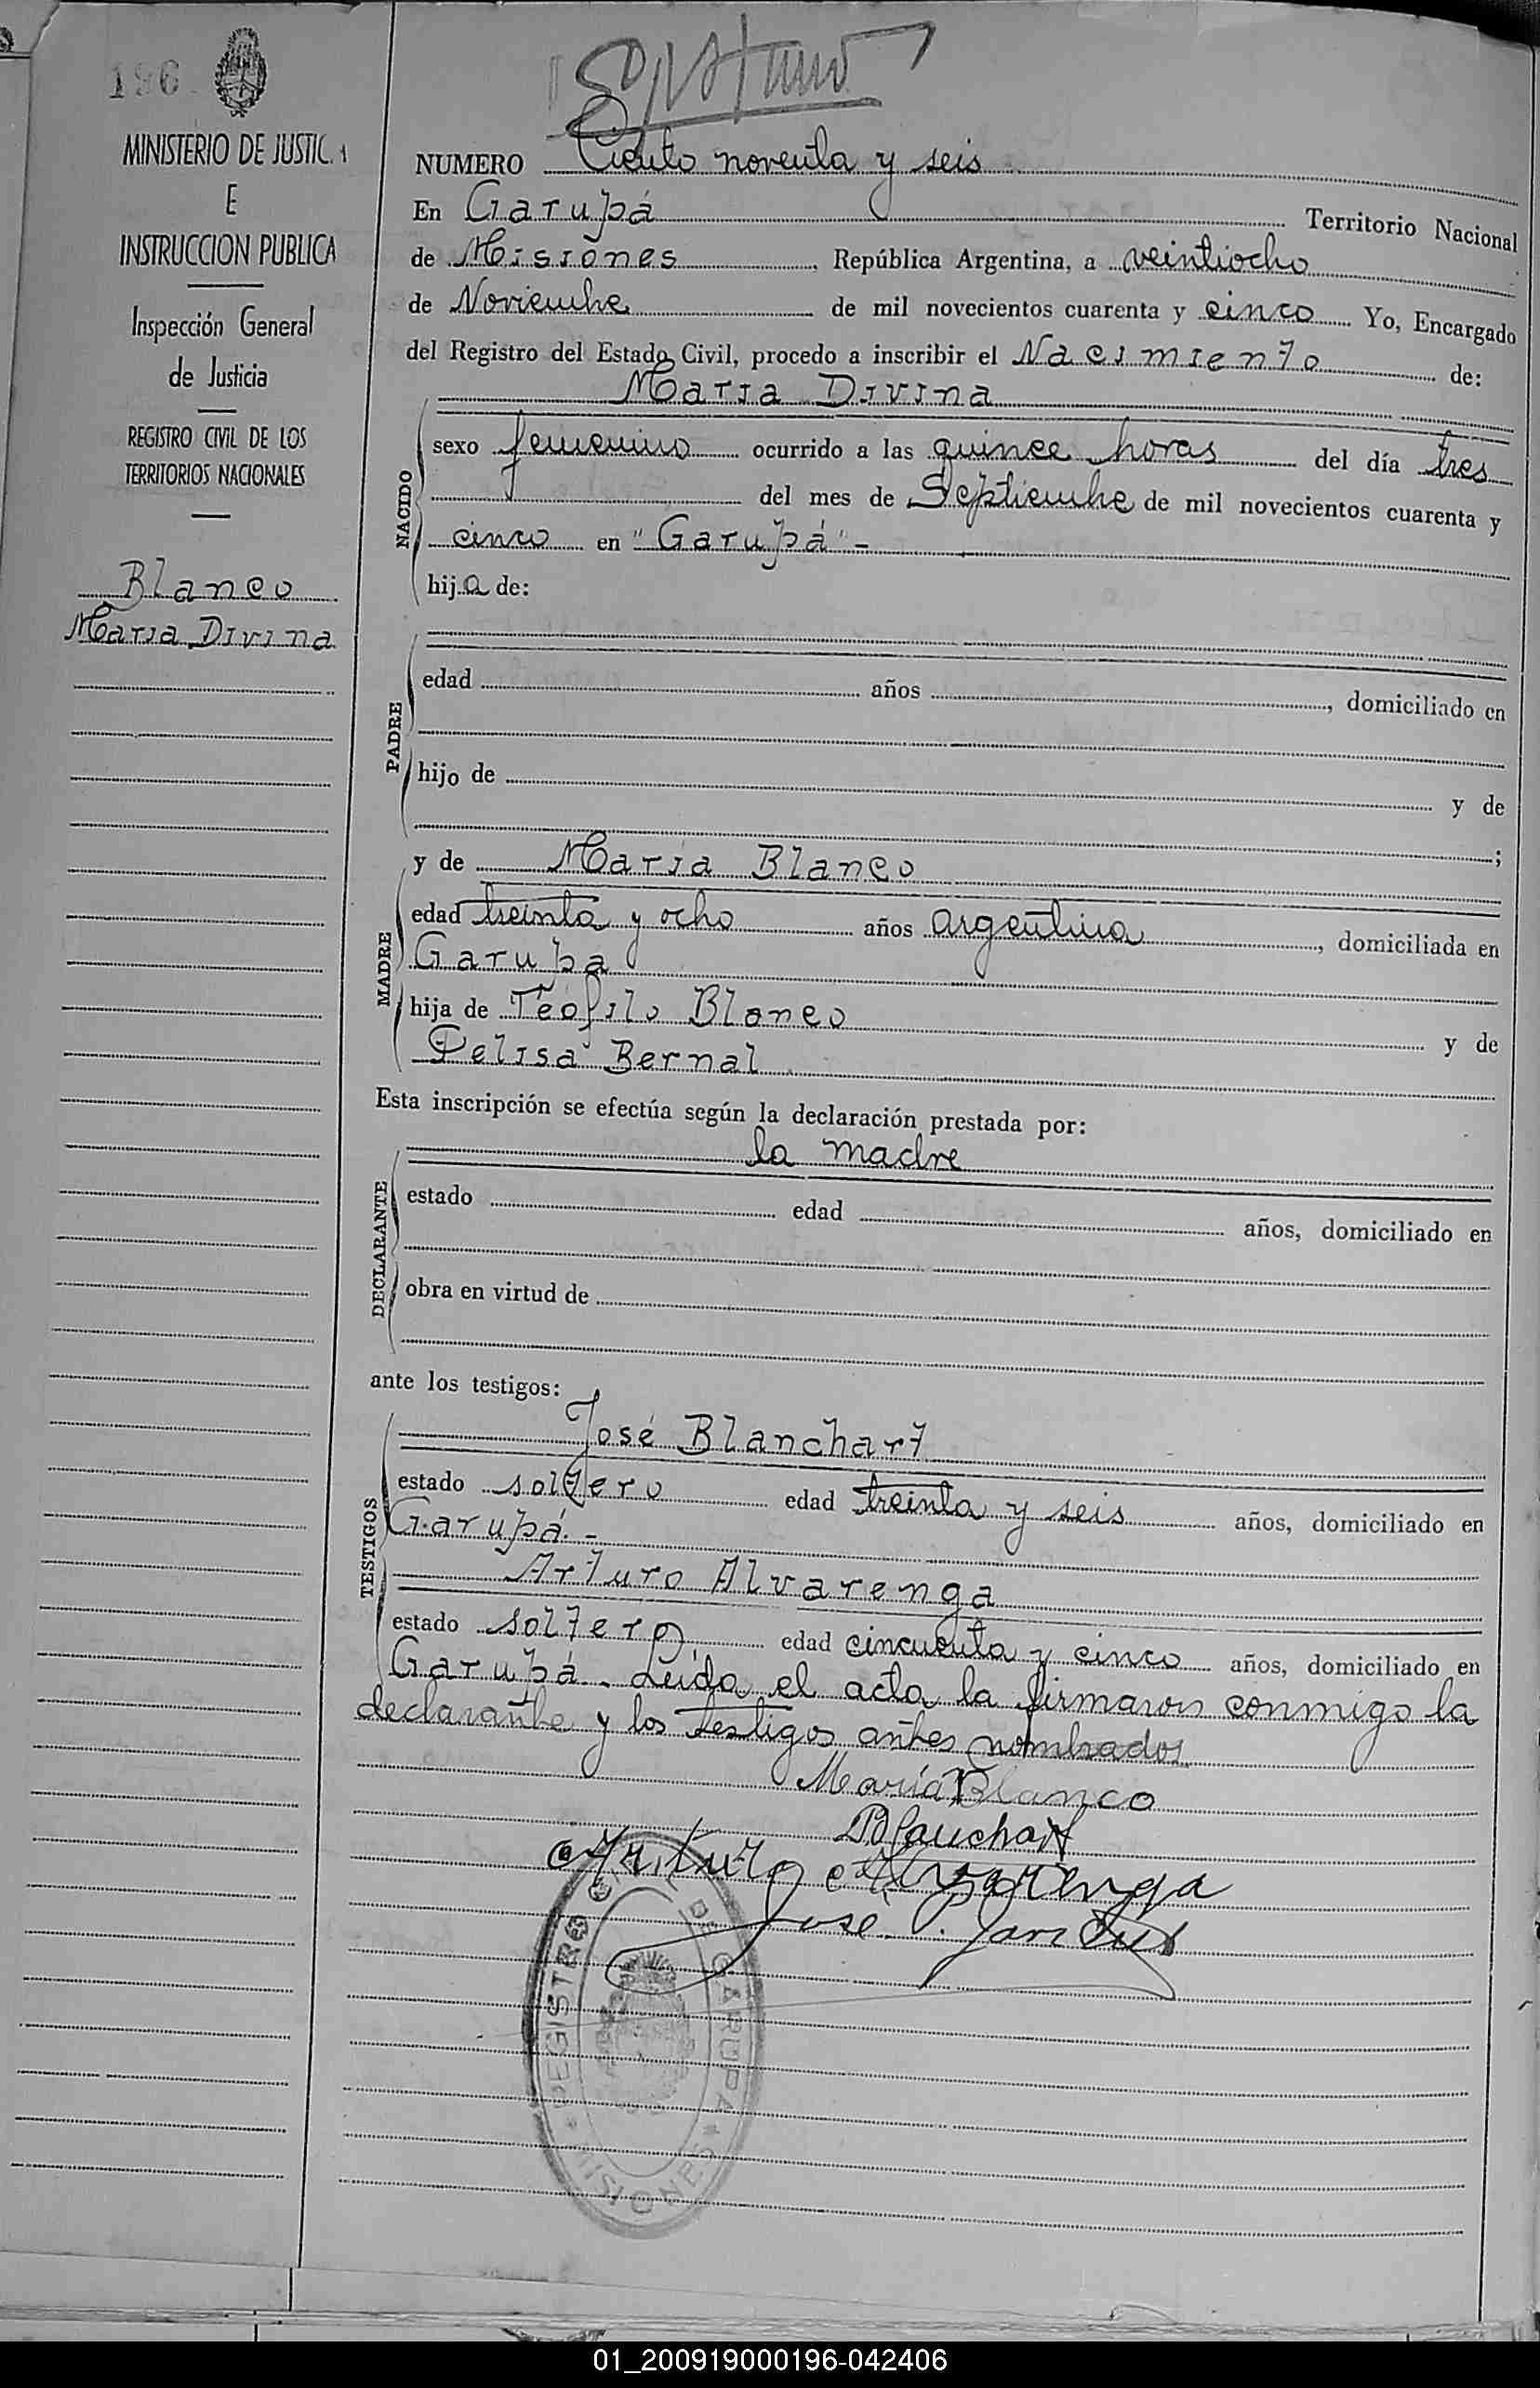 196
MINISTERIO DE JUSTIC
E
INSTRUCCION PUBLICA
Inspección General
de Justicia
REGISTRO CIVIL DE LOS
TERRITORIOS NACIONALES
Blanco
Maria Divina
NUMERO Ciento noventa y seis
En Garupá Territorio Nacional
de Misiones, República Argentina, a veintiocho
de Noviembre de mil novecientos cuarenta y cinco Yo, Encargado
del Registro del Estado Civil, procedo a inscribir el Nacimiento de:
Maria Divina
NACIDO
sexo femenino ocurrido a las quince horas del día tres
del mes de Septiembre de mil novecientos cuarenta y
cinco en "Garupá" -
hija de:
PADRE
edad años , domiciliado en
hijo de y de
;
y de Maria Blanco
MADRE
edad treinta y ocho años argentina, domiciliada en
Garupá
hija de Teófilo Blanco y de
Pelisa Bernal
Esta inscripción se efectúa según la declaración prestada por:
la madre
DECLARANTE
estado edad años, domiciliado en
obra en virtud de
ante los testigos:
TESTIGOS
José Blanchart
estado soltero edad treinta y seis años, domiciliado en
Garupá. -
Arturo Alvarenga
estado soltero edad cincuenta y cinco años, domiciliado en
Garupá. Leída el acta la firmaron conmigo la
declarante y los testigos antes nombrados
María Blanco
Blanchart
Arturo Alvarenga
José
REGISTRO CIVIL DE GARUPA * MISIONES *
01_200919000196-042406